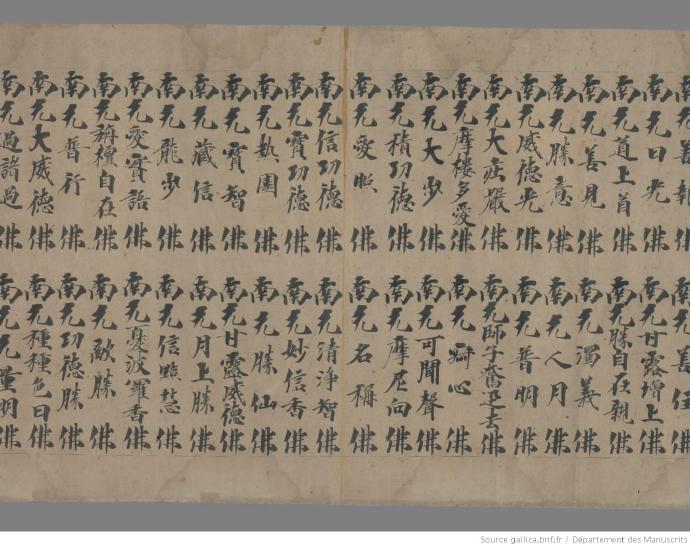 南无善報佛 南无善住佛
南无日光佛 南无甘露增上佛
南无道上首佛 南无勝自在親佛
南无善見佛 南无濁義佛
南无勝意佛 南无人月佛
南无威德光佛 南无普明佛
南无大莊嚴佛 南无師子奮迅去佛
南无摩樓多愛佛 南无心佛
南无大步佛 南无可聞聲佛
南无積功德佛 南无摩尼向佛
南无愛照佛 南无名稱佛
南无信功德佛 南无清淨智佛
南无寶功德佛 南无妙信香佛
南无佛 南无勝仙佛
南无寶智佛 南无甘露威德佛
南无藏信佛 南无月上勝佛
南无能步佛 南无信照佛
南无愛實語佛 南无憂波羅香佛
南无旃檀自在佛 南无敵勝佛
南无普行佛 南无功德勝佛
南无大威德佛 南无種種色日佛
南无過諸過佛 南无无量明佛
Source gallica.bnf.fr / Département des Manuscrits